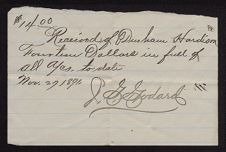 $14.00
Received of Dunham Hardison
Fourteen Dollars in full of
all a/cs to date
Nov. 27 1896
J. G. Godard